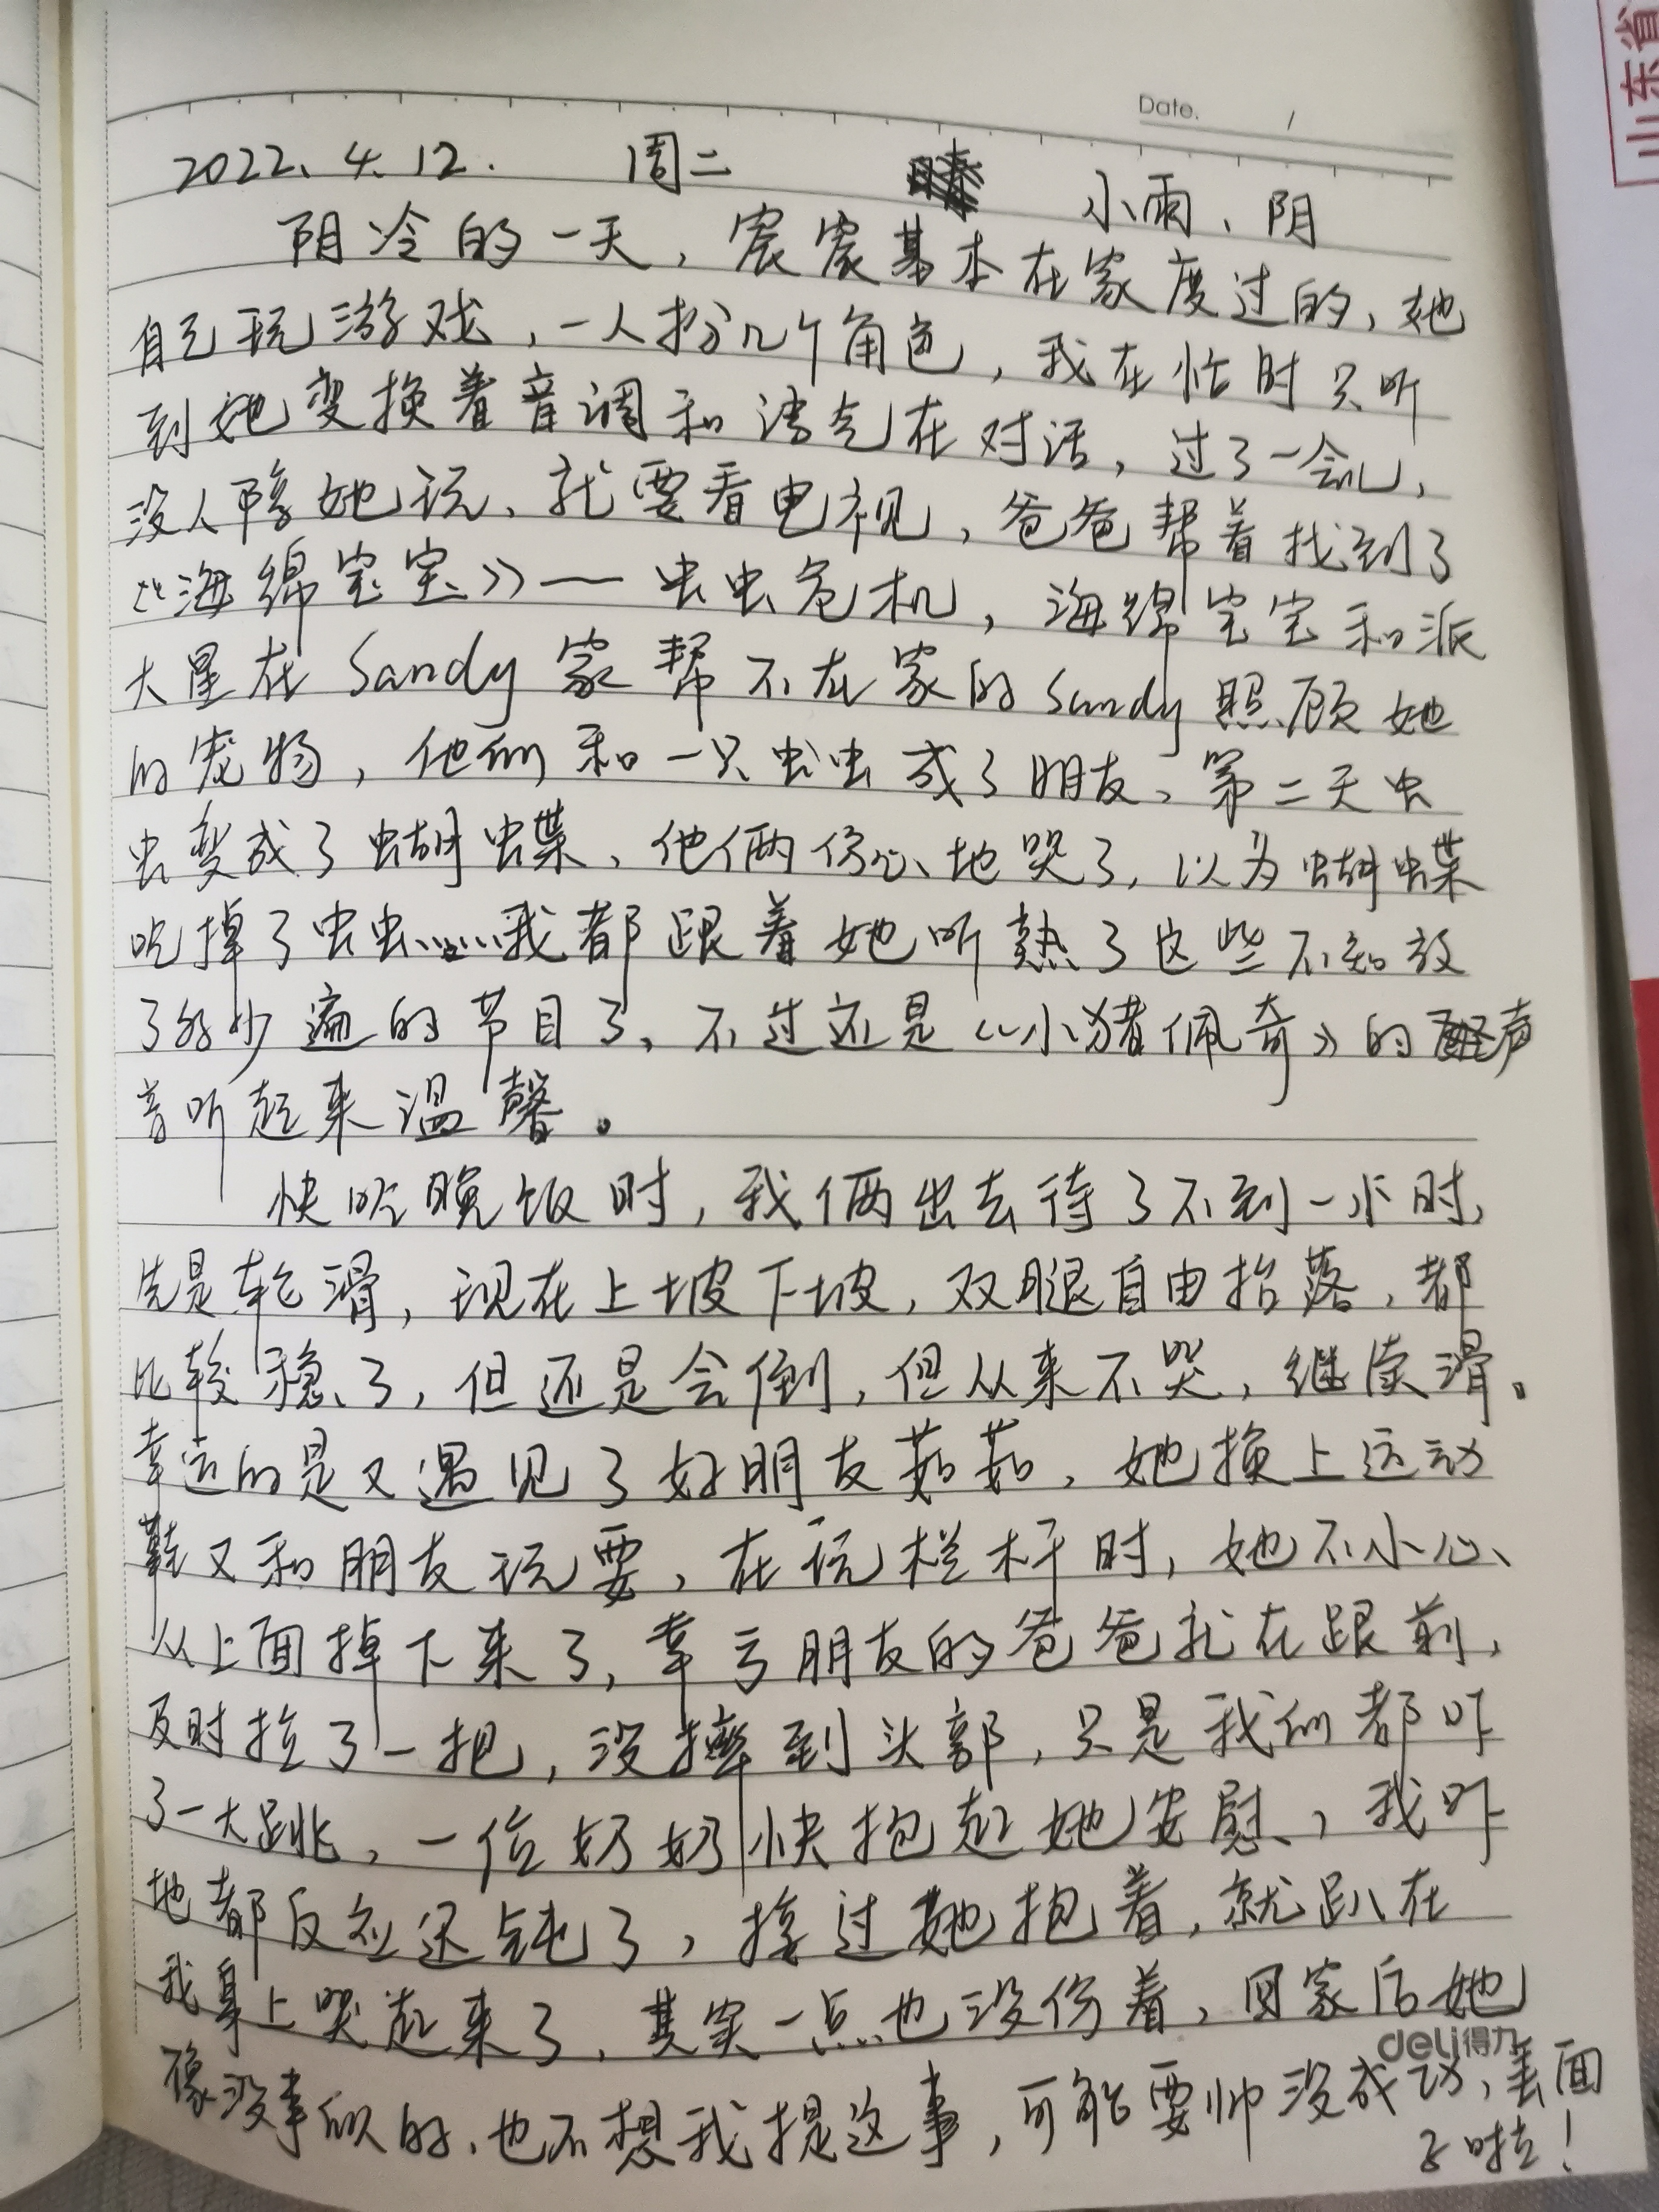 Date. /
2022.4.12. 周二 小雨、阴
阴冷的一天，宸宸基本在家度过的，她
自己玩游戏，一人扮几个角色，我在忙时只听
到她变换着音调和语气在对话，过了一会儿，
没人陪她玩、就要看电视，爸爸帮着找到了
《海绵宝宝》一虫虫危机，海绵宝宝和派
大星在Sandy家帮不在家的Sandy照顾她
的宠物，他们和一只虫虫成了朋友、第二天虫
虫变成了蝴蝶、他俩伤心地哭了，以为蝴蝶
吃掉了虫虫……我都跟着她听熟了这些不知放
了多少遍的节目了、不过还是《小猪佩奇》的声
音听起来温馨。
快吃晚饭时，我俩出去待了不到一小时，
先是轮滑，现在上坡下坡，双腿自由抬落、都
比较稳了，但还是会倒，但从来不哭，继续滑。
幸运的是又遇见了好朋友茹茹、她换上运动
鞋又和朋友玩耍、在玩栏杆时，她不小心、
从上面掉下来了，幸亏朋友的爸爸就在跟前，
及时拉了一把，没摔到头部，只是我们都吓
了一大跳、一位奶奶快抱起她安慰、我吓
地都反应迟钝了，接过她抱着，就趴在
我身上哭起来了、其实一点也没伤着，回家后她
像没事似的、也不想我提这事，可能耍帅没成功、丢面
子啦！
deli得力
山东省